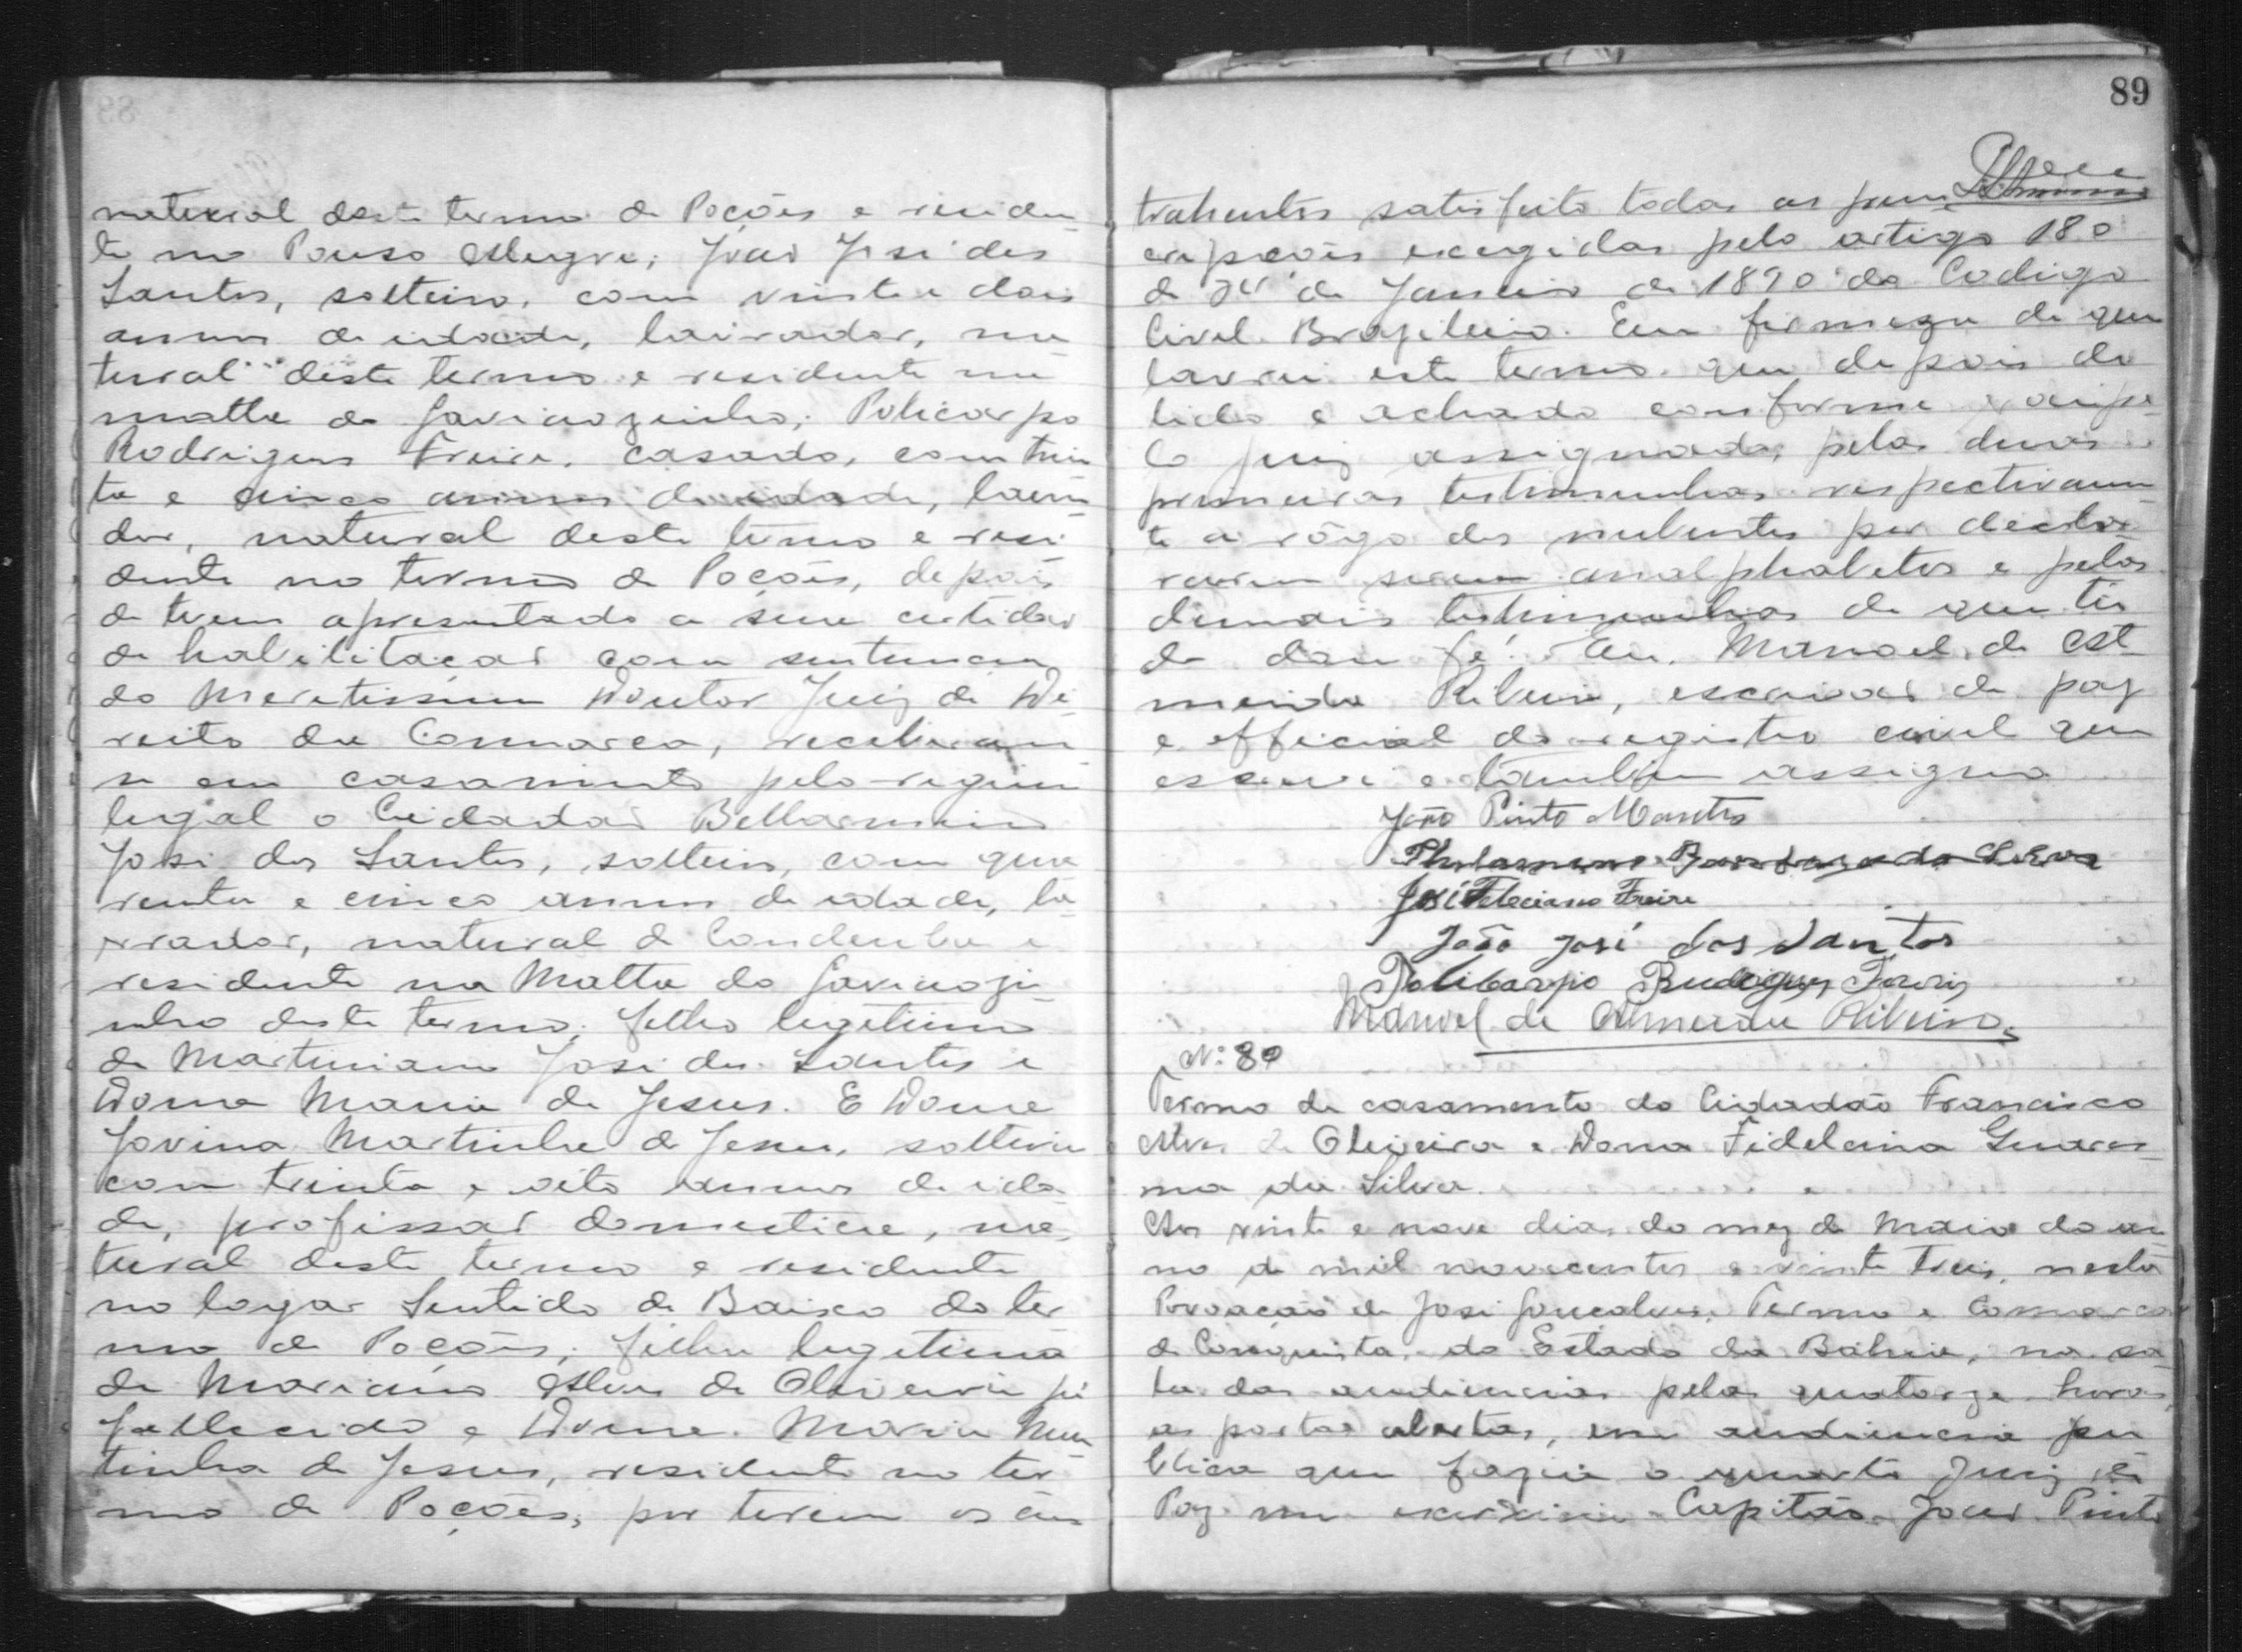 natural deste termo de Poções e residen
te no Pouso Alegre; João José dos
Santos, solteiro, com vinte e dois
annos de idade, lavrador, na
tural deste termo e residente na
matta do Gaviaozinho; Policarpo
Rodrigues Freire, casado, com trin
ta e cinco annos de idade, lavra
dor, natural deste termo e resi
dente no termo de Poções, depois
de terem apresentado a sua certidão
de habilitação com sentença
do Meretissimo Doutor Juiz de Di
reito da Commarca, receberam
se em casamento pelo regimen
legal o Cidadão Bellarmino
José dos Santos, solteiro, com qua
renta e cinco annos de idade, la
vrador, natural de Condeuba e
residente na Matta do Gaviaozi
nho deste termo, filho legitimo
de Martiniano José dos Santos e
Dona Maria de Jesus. E Dona
Jovina Martinha de Jesus, solteira
com trinta e oito annos de ida
de, profissão domestica, na
tural deste termo e residente
no logar Sentido de Baixo do ter
mo de Poções, filha legitima
de Mariano Alves de Oliveira já
fallecido e Dona Maria Mar
tinha de Jesus, residente no ter
mo de Poções, por terem os con
89
trahentes satisfeito todas as
exigidas pelo artigo 180
de 24 de Janeiro de 1890 do Codigo
Civel Brazileiro. Em firmeza de que
lavrei este termo que depois de
lido e achado conforme vai pe
lo juiz assignado, pelas duas
primeiras testimunhas respectivamen
te a rôgo dos nubentes por decla
rarem serem analphabetos e pelas
demais testimunhas de que tu
do dou fé. Eu, Manoel de Al
meida Ribeiro, escrivão de paz
e official do registro civil que
escrevi e tambem assigno
João Pinto Mantes
da Silva
José Feleciano Freire
João José dos Santos
Polibarpio Rudogues
Manoel de Almeida Ribeiro
Nº 80
Termo de casamento do Cidadão Francisco
Alves de Oliveira e Dona Fidelcina
ma da Silva
Aos vinte e nove dias do mez de Maio do an
no de mil novecentos e vinte tres, nesta
Povoação de José Gonçalves, Termo e Comarca
de Conquista, do Estado da Bahia, na sa
la das audiencias pelas quatorze horas,
as portas abertas, em audiencia pu
blica que fazia o quarto Juiz de
Paz em exercicio Capitão João Pinto